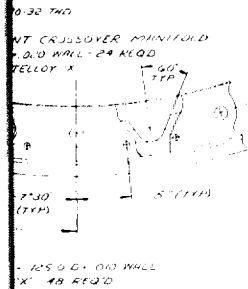 0-32 THD
NT CROSSOVER MANIFOLD
.020 WALL - 24 REQD
TELLOY X
60°
TYP
7°30'
(TYP)
5° (TYP)
.125 O.D. .010 WALL
X" 48 REQ'D